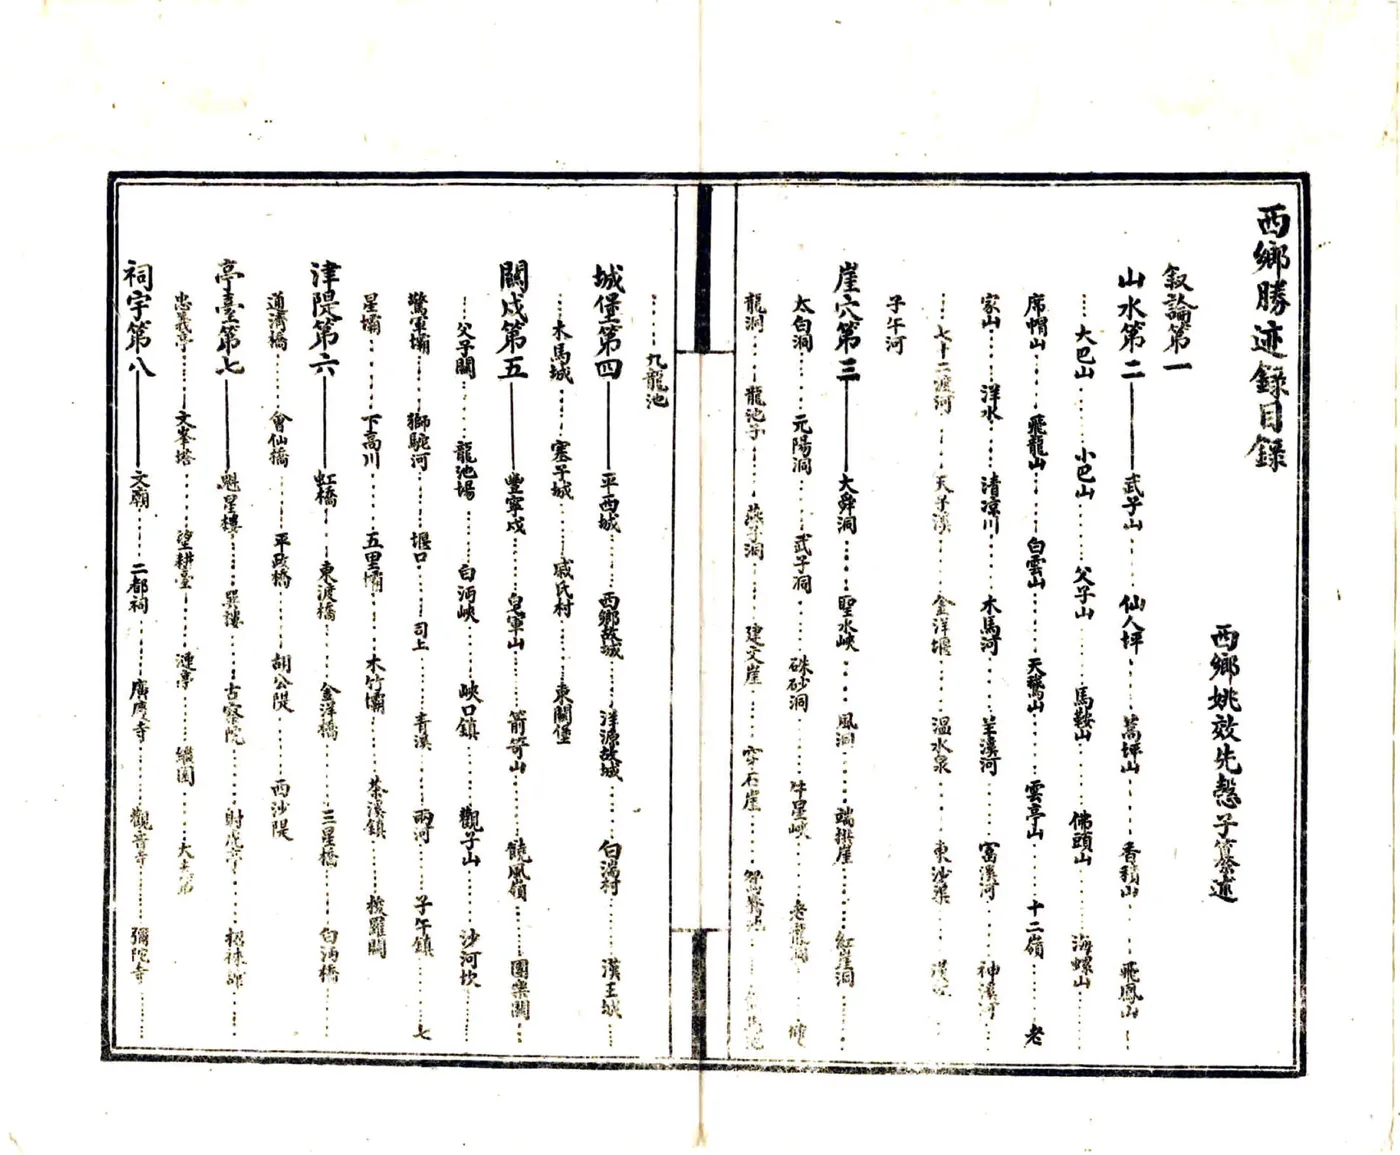 西鄉勝迹錄目錄
西鄉姚效先慤子纂述
叙論第一
山水第二——武子山……仙人坪……蒿坪山……香積山……飛鳳山……
……大巴山……小巴山……父子山……馬鞍山……佛頭山……海螺山
席帽山……飛龍山……白雲山……天鵞山……雲亭山……十二嶺……老
家山……洋水……清凉川……木馬河……羊溪河……富溪河……神溪河……
……七十二渡河……天子溪……金洋堰……溫水泉……東沙渠……
子午河
崖穴第三——大舜洞……聖水峽……風洞……端拱崖……紅崖洞……
太白洞……元陽洞……武子洞……硃砂洞……牛星峽……老龍洞……
龍洞……龍池子……燕子洞……建文崖……穿石崖……
……九龍池
城堡第四——平西城……西鄉故城……洋源故城……白澫村……漢王城……
……木馬城……塞子城……戚氏村……東關堡
關戍第五——豐寧戍……皂軍山……箭簳山……饒風嶺……團樂關……
……父子關……龍池場……白沔峽……峽口鎮……觀子山……沙河坎……
驚軍壩……獅駝河……堰口……司上……青溪……兩河……子午鎮……七
星壩……下高川……五里壩……木竹壩……茶溪鎮……梭羅關
津隄第六——虹橋……東渡橋……金洋橋……三星橋……白沔橋……
通濟橋……會仙橋……平政橋……胡公隄……西沙隄
亭臺第七——魁星樓……巽樓……古察院……射虎亭……招徠部……
忠義亭……文峯塔……望耕臺……漣亭……繼園……大夫第
祠宇第八——文廟……二都祠……廣慶寺……觀音寺……彌陀寺……